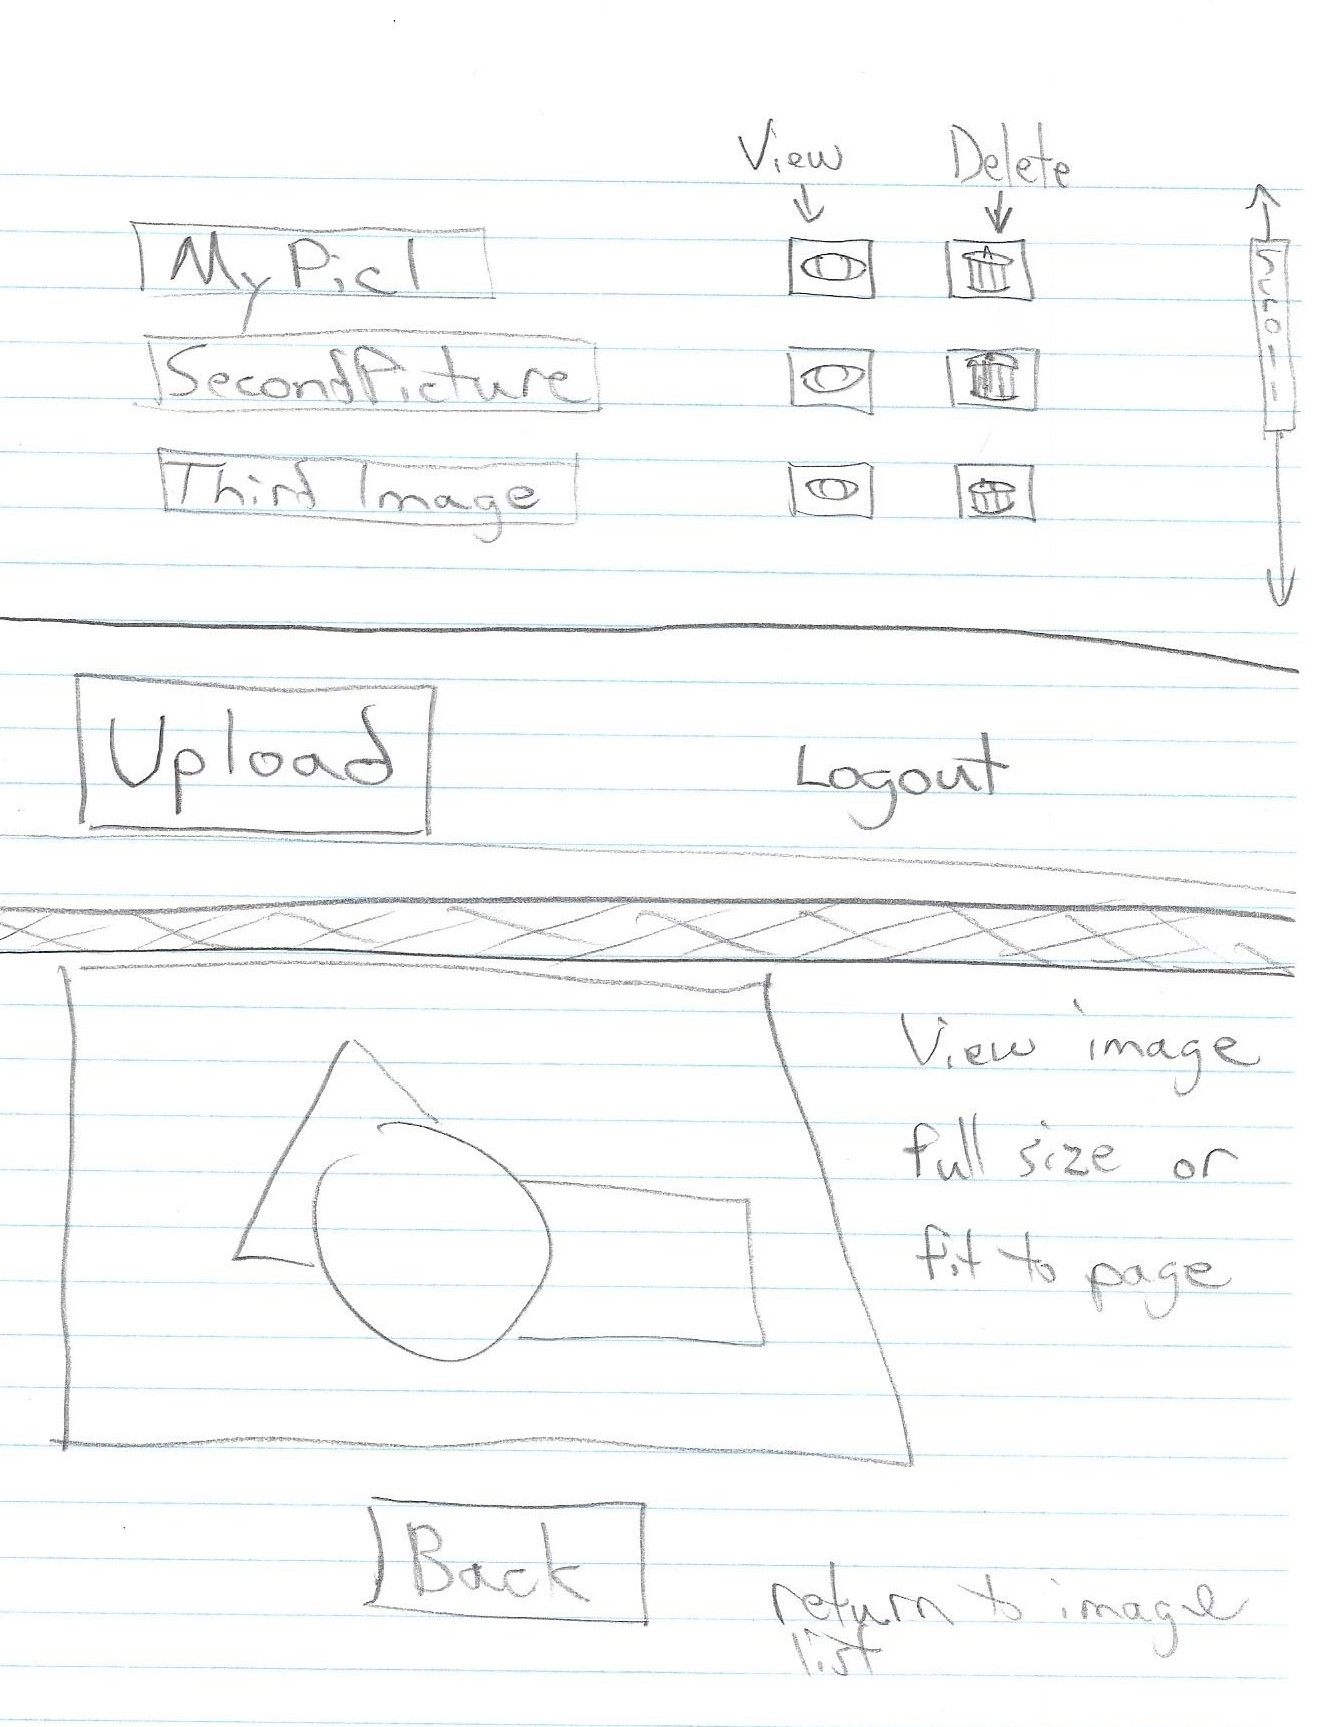 View Delete
MyPic1
SecondPicture
Third Image
Scroll
Upload
Logout
View image
full size or
fit to page
Back
return to image
list